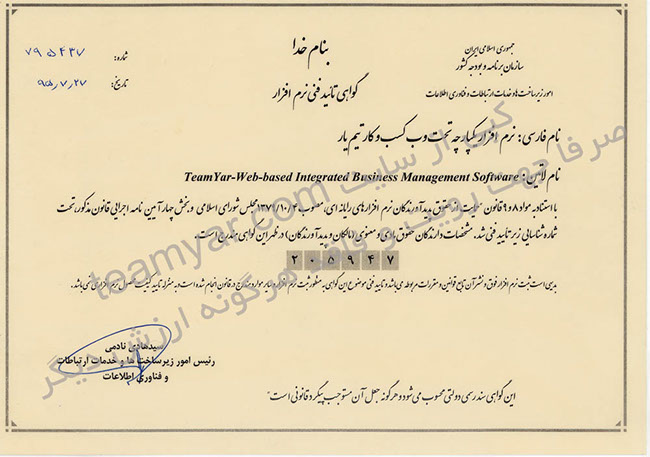 بنام خدا
جمهوری اسلامی ایران
سازمان برنامه و بودجه کشور
امور زیرساخت ها و خدمات ارتباطات و فناوری اطلاعات
شماره: ۷۹۵۴۳۷
تاریخ: ۹۵,۷,۲۷
گواهی تائید فنی نرم افزار
نام فارسی: نرم افزار یکپارچه تحت وب کسب و کار تیم یار
نام لاتین: TeamYar-Web-based Integrated Business Management Software
با استناد به مواد ۸ و ۹ قانون حمایت از حقوق پدیدآورندگان نرم افزارهای رایانه ای، مصوب ۱۳۷۹/۱۰/۴ مجلس شورای اسلامی و بخش چهار آیین نامه اجرایی قانون مذکور، تحت
شماره شناسایی زیر تایید فنی شد. مشخصات دارندگان حقوق مادی و معنوی (مالکان و پدیدآورندگان) در ظهر این گواهی مندرج است.
۲۰۵۹۴۷
بدیهی است ثبت نرم افزار فوق و نشر آن تابع قوانین و مقررات مربوطه می باشد و تایید فنی موضوع این گواهی به منظور ثبت نرم افزار و سایر موارد مندرج در قانون انجام شده است و به منزله تایید کیفیت محصول نرم افزاری نمی باشد.
سیدهادی نادمی
رئیس امور زیرساخت ها و خدمات ارتباطات
و فناوری اطلاعات
"این گواهی سند رسمی دولتی محسوب می شود و هرگونه جعل آن مستوجب پیگرد قانونی است"
کپی از سایت teamyar.com
صرفا جهت رویت و فاقد هرگونه ارزش دیگر